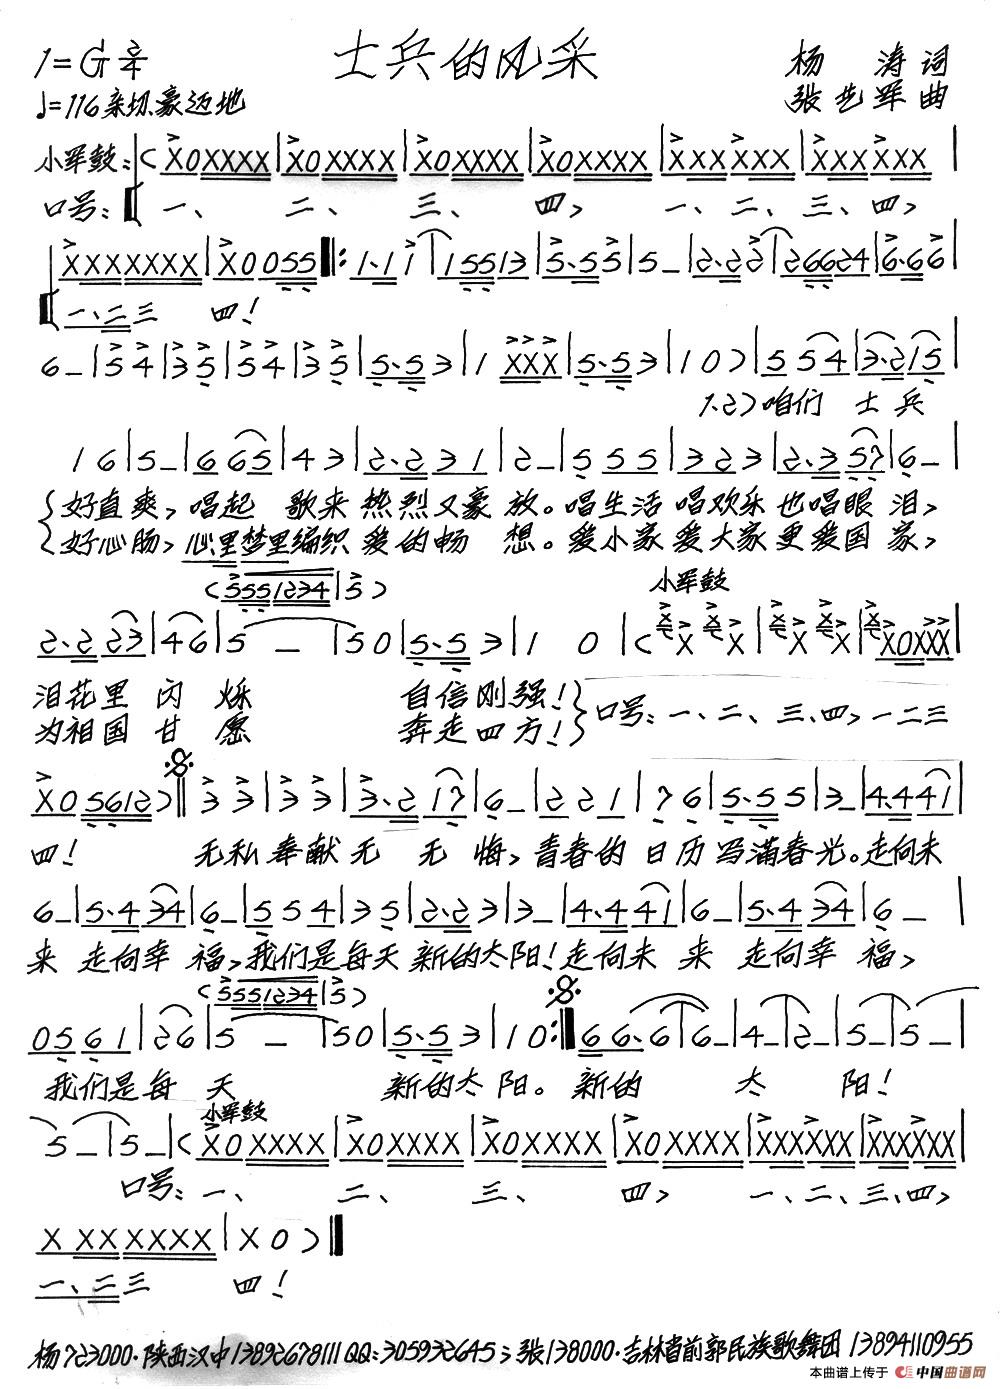 士兵的风采
1=G 2/4
杨 涛 词
♩=116 亲切、豪迈地
张艺军 曲
小军鼓:(X0XXXX|X0XXXX|X0XXXX|X0XXXX|XXXXXX|XXXXXX|
口号:一、 二、 三、 四, 一、二、三、四,
XXXXXXX|X0055‖:1·11|15513|5·555|5–|2·222|26624|6·666|
一、二三 四!
6–|54|35|54|35|5·53|1 XXX|5·53|10)|554|3·215|
1、2)咱们 士兵
16|5–|665|43|2·231|2–|555|323|2·357|6–|
好直爽,唱起 歌来 热烈又豪 放。唱生活 唱欢乐 也唱眼 泪,
好心肠,心里梦里编织 爱的畅 想。爱小家 爱大家 更爱国 家,
(5551234|5)
小军鼓
2·223|46|5–|50|5·53|1 0|(XX XX|XX XX|X0XXX|
泪花里 闪 烁 自信刚强!
为祖国 甘 愿 奔走四方!
口号:一、二、三、四,一二三
X05612)‖33|33|3·217|6–|221|76|5·555|3–|4·441|
四! 无私奉献无 无 悔,青春的 日历 写满春光。走向未
6–|5·434|6–|554|35|2·233|3–|4·441|6–|5·434|6–|
来 走向幸 福,我们是每天 新的太阳!走向未 来 走向幸 福,
(5551234|5)
0561|26|5–|50|5·53|10:‖66·6|6–|4–|2–|5–|5–|
我们是每 天 新的太 阳。新的 太 阳!
小军鼓
5–|5–|(X0XXXX|X0XXXX|X0XXXX|X0XXXX|XXXXXX|XXXXXX|
口号:一、 二、 三、 四, 一、二、三、四,
X XX XXXX|X0)‖
一、二三 四!
杨723000·陕西汉中13892678111QQ:305932645;张138000·吉林省前郭民族歌舞团 13894110955
本曲谱上传于 中国曲谱网